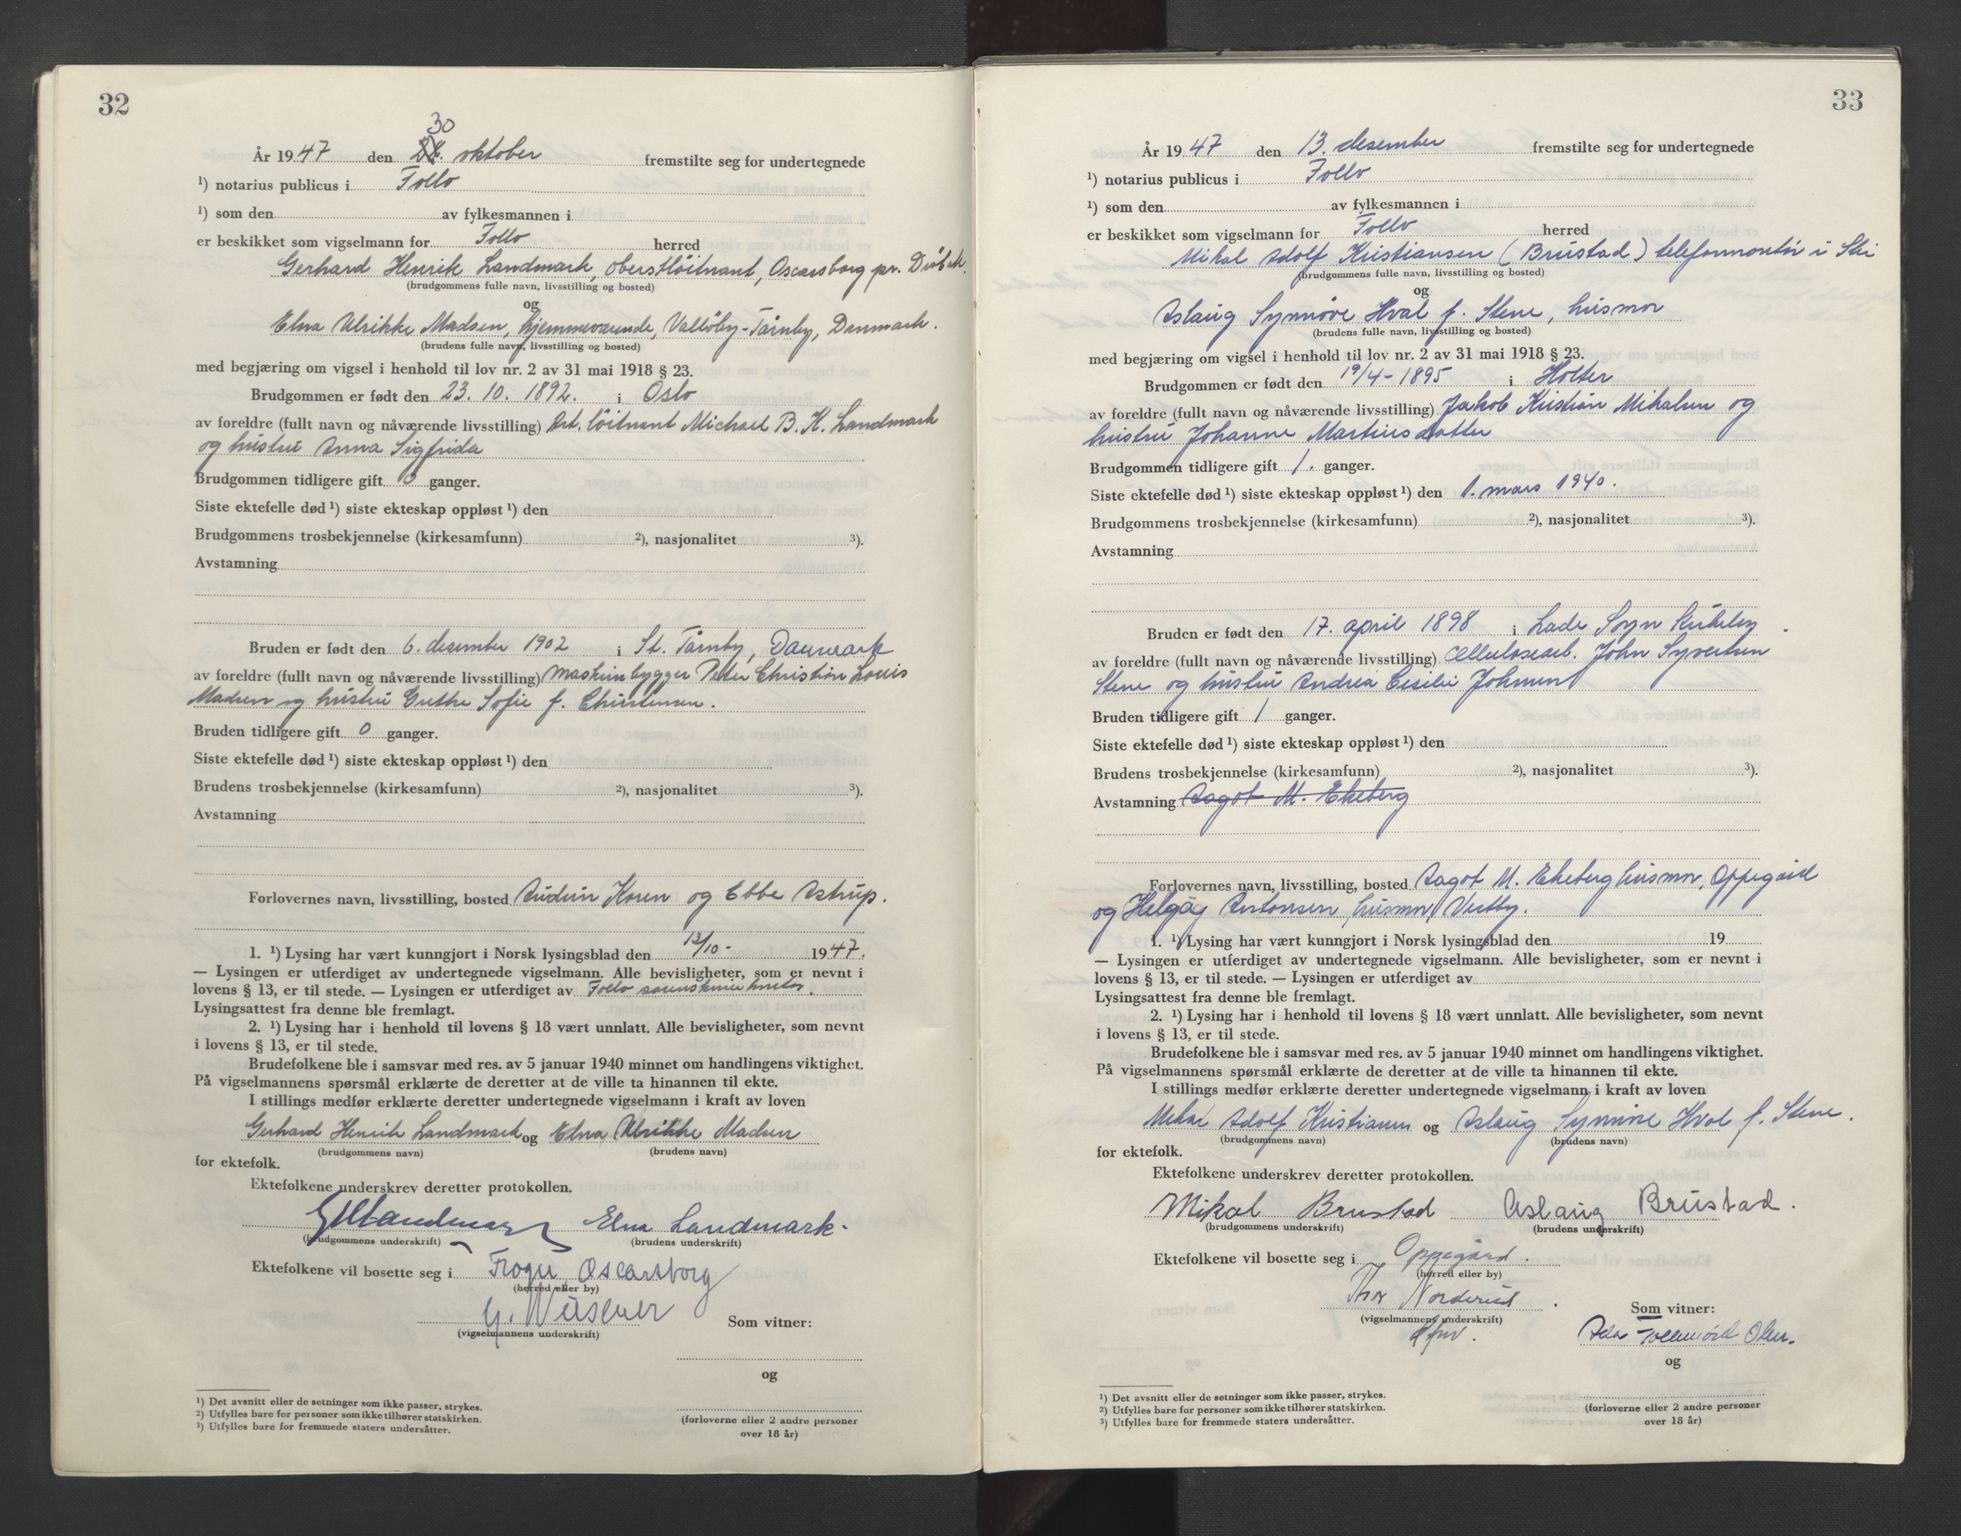 32
30
År 1947 den oktober fremstilte seg for undertegnede
¹) notarius publicus i Follo
¹) som den av fylkesmannen i
er beskikket som vigselmann for Follo herred
Gerhard Henrik Landmark, oberstløitnant, Oscarsborg pr. Drøbak.
(brudgommens fulle navn, livsstilling og bosted)
og
Elna Ulrikke Madsen, hjemmeværende, Vallöby-Tårnby, Danmark.
(brudens fulle navn, livsstilling og bosted)
med begjæring om vigsel i henhold til lov nr. 2 av 31 mai 1918 § 23.
Brudgommen er født den 23. 10. 1892. i Oslo
av foreldre (fullt navn og nåværende livsstilling) Art. löitnant Michael B. K. Landmark
og hustru Anna Sigfrida
Brudgommen tidligere gift 0 ganger.
Siste ektefelle død ¹) siste ekteskap oppløst ¹) den
Brudgommens trosbekjennelse (kirkesamfunn) ²), nasjonalitet ³).
Avstamning
Bruden er født den 6. desember 1902 i St. Tårnby, Danmark
av foreldre (fullt navn og nåværende livsstilling) maskinbygger Peter Christian Louis
Madsen og hustru Grethe Sofie f. Christensen.
Bruden tidligere gift 0 ganger.
Siste ektefelle død ¹) siste ekteskap oppløst ¹) den
Brudens trosbekjennelse (kirkesamfunn) ²), nasjonalitet ³).
Avstamning
Forlovernes navn, livsstilling, bosted Audun Koren og Ebbe Astrup.
1. ¹) Lysing har vært kunngjort i Norsk lysingsblad den 12/10- 1947.
— Lysingen er utferdiget av undertegnede vigselmann. Alle bevisligheter, som er nevnt i
lovens § 13, er til stede. — Lysingen er utferdiget av Follo sorenskriverkontor.
Lysingsattest fra denne ble fremlagt.
2. ¹) Lysing har i henhold til lovens § 18 vært unnlatt. Alle bevisligheter, som nevnt
i lovens § 13, er til stede.
Brudefolkene ble i samsvar med res. av 5 januar 1940 minnet om handlingens viktighet.
På vigselmannens spørsmål erklærte de deretter at de ville ta hinannen til ekte.
I stillings medfør erklærte deretter undertegnede vigselmann i kraft av loven
Gerhard Henrik Landmark og Elna Ulrikke Madsen
(brudgommens navn) (brudens navn)
for ektefolk.
Ektefolkene underskrev deretter protokollen.
GHLandmark Elna Landmark.
(brudgommens underskrift) (brudens underskrift)
Ektefolkene vil bosette seg i Frogn Oscarsborg
(herred eller by)
(vigselmannens underskrift) Som vitner:
og
¹) Det avsnitt eller de setninger som ikke passer, strykes.
²) Utfylles bare for personer som ikke tilhører statskirken.
³) Utfylles bare for fremmede staters undersåtter.
(forloverne eller 2 andre personer
over 18 år)
33
År 1947 den 13. desember fremstilte seg for undertegnede
¹) notarius publicus i Follo
¹) som den av fylkesmannen i
er beskikket som vigselmann for Follo herred
Mikal Adolf Kristiansen (Brustad) telefonmontör i Ski
(brudgommens fulle navn, livsstilling og bosted)
og
Aslaug Synnøve Hval f. Stene, husmor
(brudens fulle navn, livsstilling og bosted)
med begjæring om vigsel i henhold til lov nr. 2 av 31 mai 1918 § 23.
Brudgommen er født den 19/4-1895 i Holter
av foreldre (fullt navn og nåværende livsstilling) Jakob Kristian Mikalsen og
hustru Johanne Martinsdatter
Brudgommen tidligere gift 1. ganger.
Siste ektefelle død ¹) siste ekteskap oppløst ¹) den 1. mars 1940.
Brudgommens trosbekjennelse (kirkesamfunn) ²), nasjonalitet ³).
Avstamning
Bruden er født den 17. april 1898 i Lade Sogn
av foreldre (fullt navn og nåværende livsstilling) Cellulosearb. John Syvertsen
Stene og hustru Andrea Cesilie Johnsen
Bruden tidligere gift 1 ganger.
Siste ektefelle død ¹) siste ekteskap oppløst ¹) den
Brudens trosbekjennelse (kirkesamfunn) ²), nasjonalitet ³).
Avstamning Aagot M. Ekeberg
Forlovernes navn, livsstilling, bosted Aagot M. Ekeberg husmor, Oppegård
og Helga Antonsen, husmor, Vestby.
1. ¹) Lysing har vært kunngjort i Norsk lysingsblad den 19
— Lysingen er utferdiget av undertegnede vigselmann. Alle bevisligheter, som er nevnt i
lovens § 13, er til stede. — Lysingen er utferdiget av
Lysingsattest fra denne ble fremlagt.
2. ¹) Lysing har i henhold til lovens § 18 vært unnlatt. Alle bevisligheter, som nevnt
i lovens § 13, er til stede.
Brudefolkene ble i samsvar med res. av 5 januar 1940 minnet om handlingens viktighet.
På vigselmannens spørsmål erklærte de deretter at de ville ta hinannen til ekte.
I stillings medfør erklærte deretter undertegnede vigselmann i kraft av loven
Mikal Adolf Kristiansen og Aslaug Synnöve Hval f. Stene.
(brudgommens navn) (brudens navn)
for ektefolk.
Ektefolkene underskrev deretter protokollen.
Mikal Brustad Aslaug Brustad.
(brudgommens underskrift) (brudens underskrift)
Ektefolkene vil bosette seg i Oppegård.
(herred eller by)
Thor Norderud. Som vitner:
(vigselmannens underskrift)
og
¹) Det avsnitt eller de setninger som ikke passer, strykes.
²) Utfylles bare for personer som ikke tilhører statskirken.
³) Utfylles bare for fremmede staters undersåtter.
(forloverne eller 2 andre personer
over 18 år)